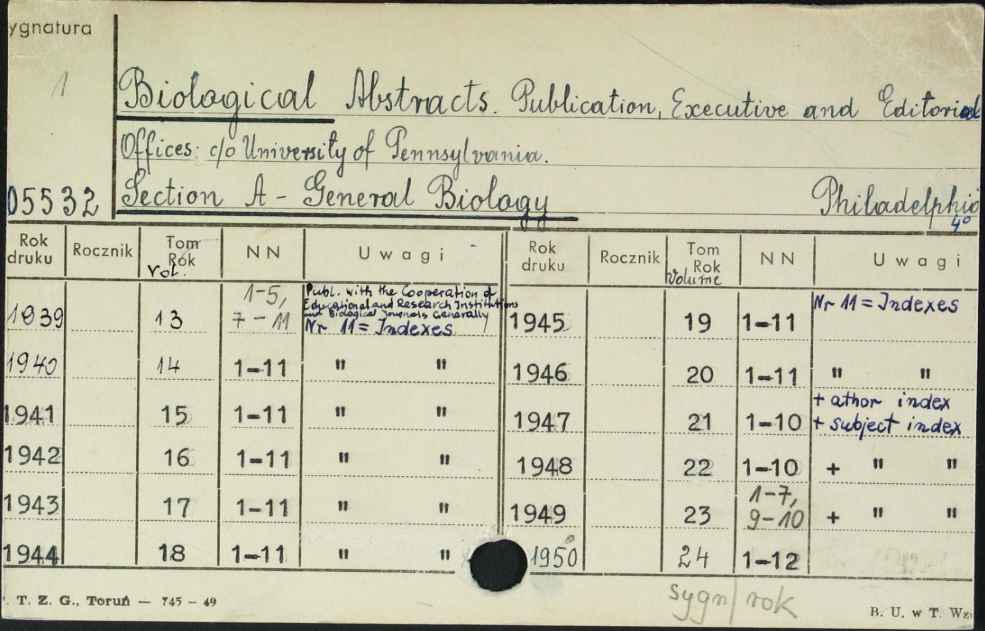 ygnatura
1
Biological Abstracts. Publication, Executive and Editorial
Offices: c/o University of Pennsylvania.
05532 Section A - General Biology Philadelphia
4°
Rok druku Rocznik Tom Rok Vol. NN Uwagi Rok druku Rocznik Tom Rok Volume NN Uwagi
1939 13 1-5, 7-11 Publ. with the Cooperation of Educational and Research Institutions and Biological Journals Generally Nr 11 = Indexes 1945 19 1-11 Nr 11 = Indexes
1940 14 1-11 " " 1946 20 1-11 " "
1941 15 1-11 " " 1947 21 1-10 + athor index + subject index
1942 16 1-11 " " 1948 22 1-10 + " "
1943 17 1-11 " " 1949 23 1-7, 9-10 + " "
1944 18 1-11 " " 1950 24 1-12
sygn/rok
. T. Z. G., Toruń — 745 - 49 B. U. w T. Wz